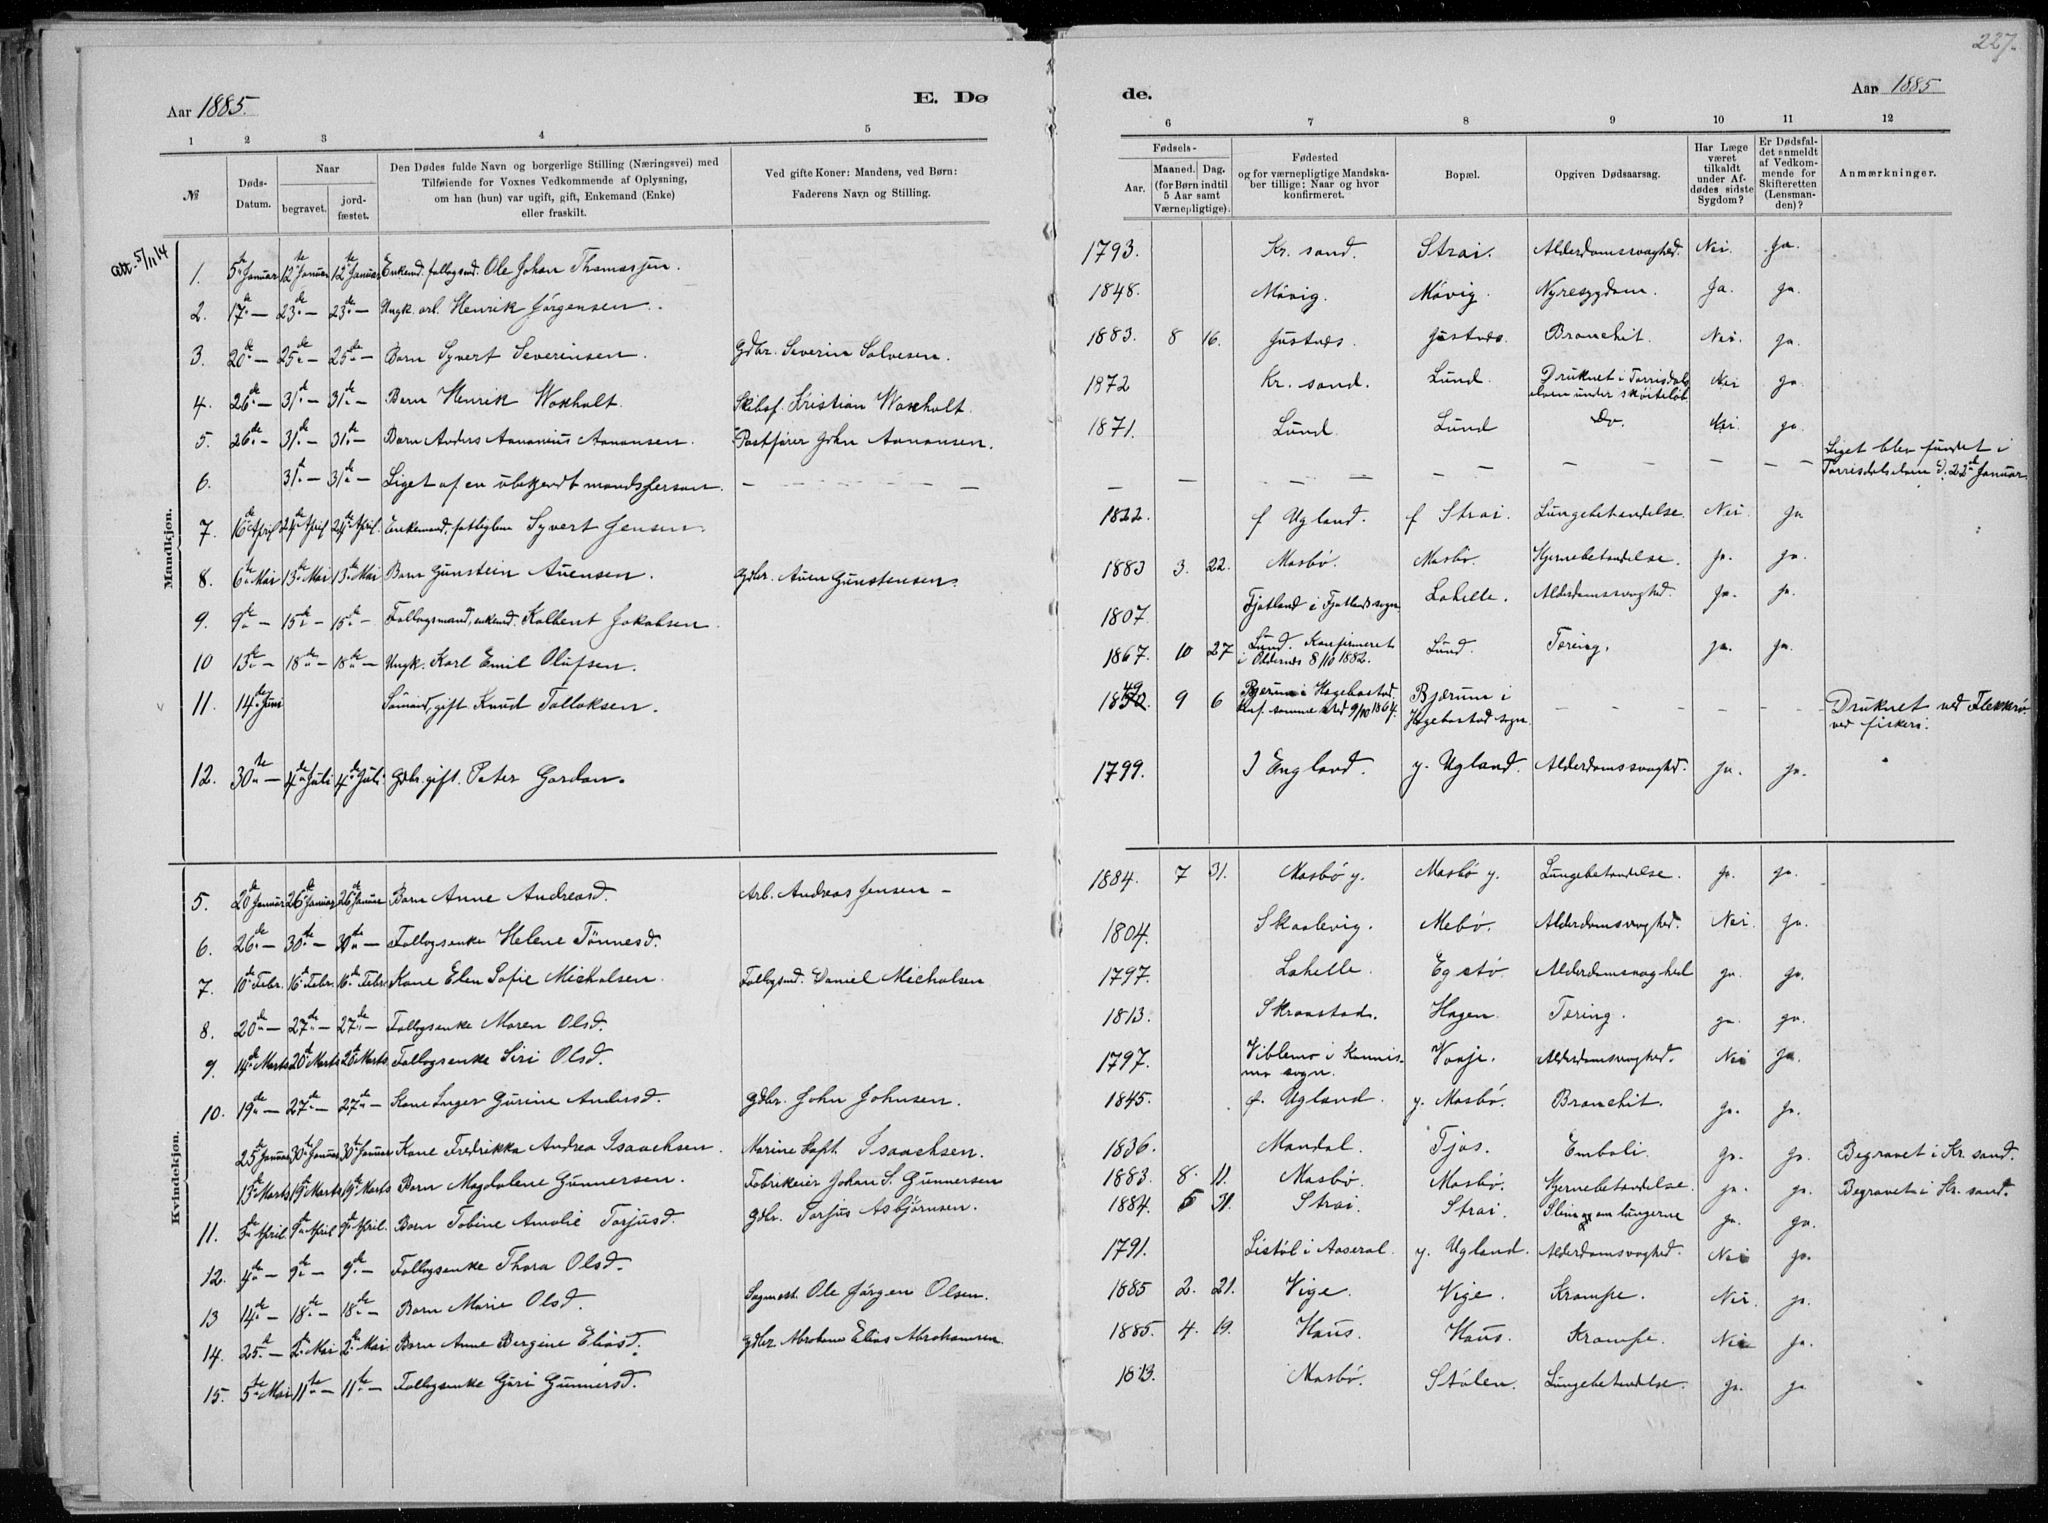 227.
Aar 1885.
E. Dø
de.
Aar 1885
1 2 3 4 5 6 7 8 9 10 11 12
№
Døds-Datum.
Naar
begravet.
jord-fæstet.
Den Dødes fulde Navn og borgerlige Stilling (Næringsvei) med
Tilføiende for Voxnes Vedkommende af Oplysning,
om han (hun) var ugift, gift, Enkemand (Enke)
eller fraskilt.
Ved gifte Koner: Mandens, ved Børn:
Faderens Navn og Stilling.
Fødsels-
Aar.
Maaned. Dag.
(for Børn indtil
5 Aar samt
Værnepligtige).
Fødested
og for værnepligtige Mandska-
ber tillige: Naar og hvor
konfirmeret.
Bopæl.
Opgiven Dødsaarsag.
Har Læge
været
tilkaldt
under Af-
dødes sidste
Sygdom?
Er Dødsfal-
det anmeldt
af Vedkom-
mende for
Skifteretten
(Lensman-
den)?
Anmærkninger.
Mandkjøn.
att. 5/11 14
1. 5te Januar 12te Januar 12te Januar Enkemd. follogsmd. Ole Johan Thomassen. 1793. Kr. sand. Strai. Alderdomssvaghed. Nei. Ja.
2. 17de — 23de — 23de — Ungk. arb. Henrik Jørgensen. 1848. Møvig. Møvig. Nyresygdom. Ja. Ja.
3. 20de — 25de — 25de — Barn Syvert Severinsen. Gdbr. Severin Salvesen. 1883. 8 16. Justnæs. Justnæs. Bronchit. Nei. Ja.
4. 26de — 31te — 31te — Barn Henrik Woxholt. Skibsf. Kristian Woxholt. 1872 Kr. sand. Lund. Druknet i Torrisdals
elven under skøiteløb. Nei Ja.
5. 26de — 31te — 31te — Barn Anders Aanonius Aanonsen. Postfører John Aanonsen. 1871. Lund. Lund Do. Nei. Ja.
6. 31te — 31te — Liget af en ubekjendt mandsperson. — — — — Liget blev fundet i
Torrisdalselven d. 22de Januar.
7. 16de April 24de April 24de April. Enkemand, fattiglem Syvert Jensen. 1822. f Ugland. f Strai. Lungebetændelse. Nei. Ja
8. 6te Mai 13de Mai 13de Mai Barn Gunstein Auensen. Gdbr. Auen Gunstensen. 1883 3. 22. Mosbø. Mosbø. Hjernebetændelse. Ja. Ja.
9. 9de — 15de — 15de — Follogsmand, enkemd. Kolbent Jakobsen. 1807. Fjotland i Fjotlands sogn Lohelle. Alderdomssvaghed. Ja. Ja.
10 13de — 18de — 18de — Ungk. Karl Emil Olufsen. 1867. 10 27 Lund. Konfirmeret
i Oddernes 8/10 1882. Lund. Tæring. Ja. Ja.
11. 14de Juni Sømand, gift Knud Tolloksen. 1849 9 6 Bjærum i Hægebostad.
Konf. samme sted 9/10 1864. Bjærum i
Hægebostad sogn — — — Druknet ved Flekkerø
ved fiskeri.
12. 30te — 4de Juli 4de Juli Gdbr. gift. Peter Gordon. 1799. I England. y. Ugland. Alderdomssvaghed. Ja. Ja.
Kvindekjøn.
5. 20de Januar 26de Januar 26de Januar Barn Anne Andreasd. Arb. Andreas Jensen — 1884. 7 31. Mosbø y. Mosbø y. Lungebetændelse. Ja. Ja.
6. 26de — 30te — 30te — Follogsenke Helene Tønnesd. 1804. Skaalevig. Mebø. Alderdomssvaghed. Nei. Ja.
7. 10de Febr. 16de Febr. 16de Febr. Kone Elen Sofie Michalsen. Follogsmd. Daniel Michalsen 1797. Lohelle. Egstø Alderdomssvaghed Ja. Ja.
8. 20de — 27de — 27de — Follogsenke Maren Olsd. 1813. Skraastad. Hagen. Tæring. Ja. Ja.
9. 14de Marts 20de Marts 20de Marts Follogsenke Siri Olsd. 1797. Viblemo i Konnis-
mo sogn. Vraaje. Alderdomssvaghed. Nei Ja.
10. 19de — 27de — 27de — Kone Inger Gurine Andersd. Gdbr. John Johnsen. 1845. f. Ugland. y. Mosbø. Bronchit. Ja. Ja.
25de Januar 30te Januar 30te Januar Kone Fredrikka Andrea Isaachsen. Marine Kapt. Isaachsen. 1836. Mandal. Tjos. Emboli. Ja. Ja. Begravet i Kr. sand.
13de Marts 19de Marts 19de Marts Barn Magdalene Gunnersen. Fabrikeier Johan S. Gunnersen 1883. 8. 11. Mosbø. Mosbø. Hjernebetændelse. Ja. Ja. Begravet i Kr. sand.
11. 3de April 9de April 9de April. Barn Tobine Amalie Torjusd. Gdbr. Torjus Asbjørnsen. 1884. 5 31. Strai. Strai. Slim om lungerne Ja. Ja.
12. 4de — 9de — 9de — Follogsenke Thora Olsd. 1791. Listøl i Aaseral. y. Ugland. Alderdomssvaghed. Nei Ja.
13 14de — 18de — 18de — Barn Marie Olsd. Sagmest. Ole Jørgen Olsen. 1885 2. 21. Vige. Vige. Krampe. Nei. Ja.
14. 25de — 2den Mai 2den Mai Barn Anne Bergine Eliasd. Gdbr Abraham Elias Abrahamsen. 1885. 4. 19. Haus. Haus. Krampe. Nei Ja.
15. 5te Mai 11te — 11te — Follogsenke Guri Gunnersd. 1813. Mosbø. Stølen. Lungebetændelse. Ja. Ja